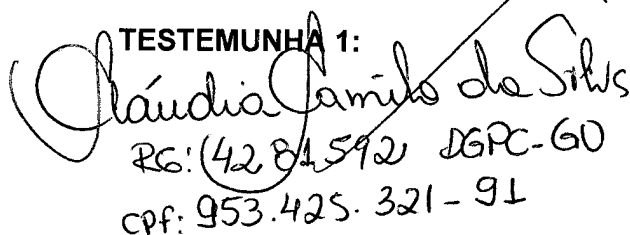 TESTEMUNHA 1:
Cláudia Camilo da Silva
RG: 4281592 DGPC-GO
CPf: 953.425.321-91